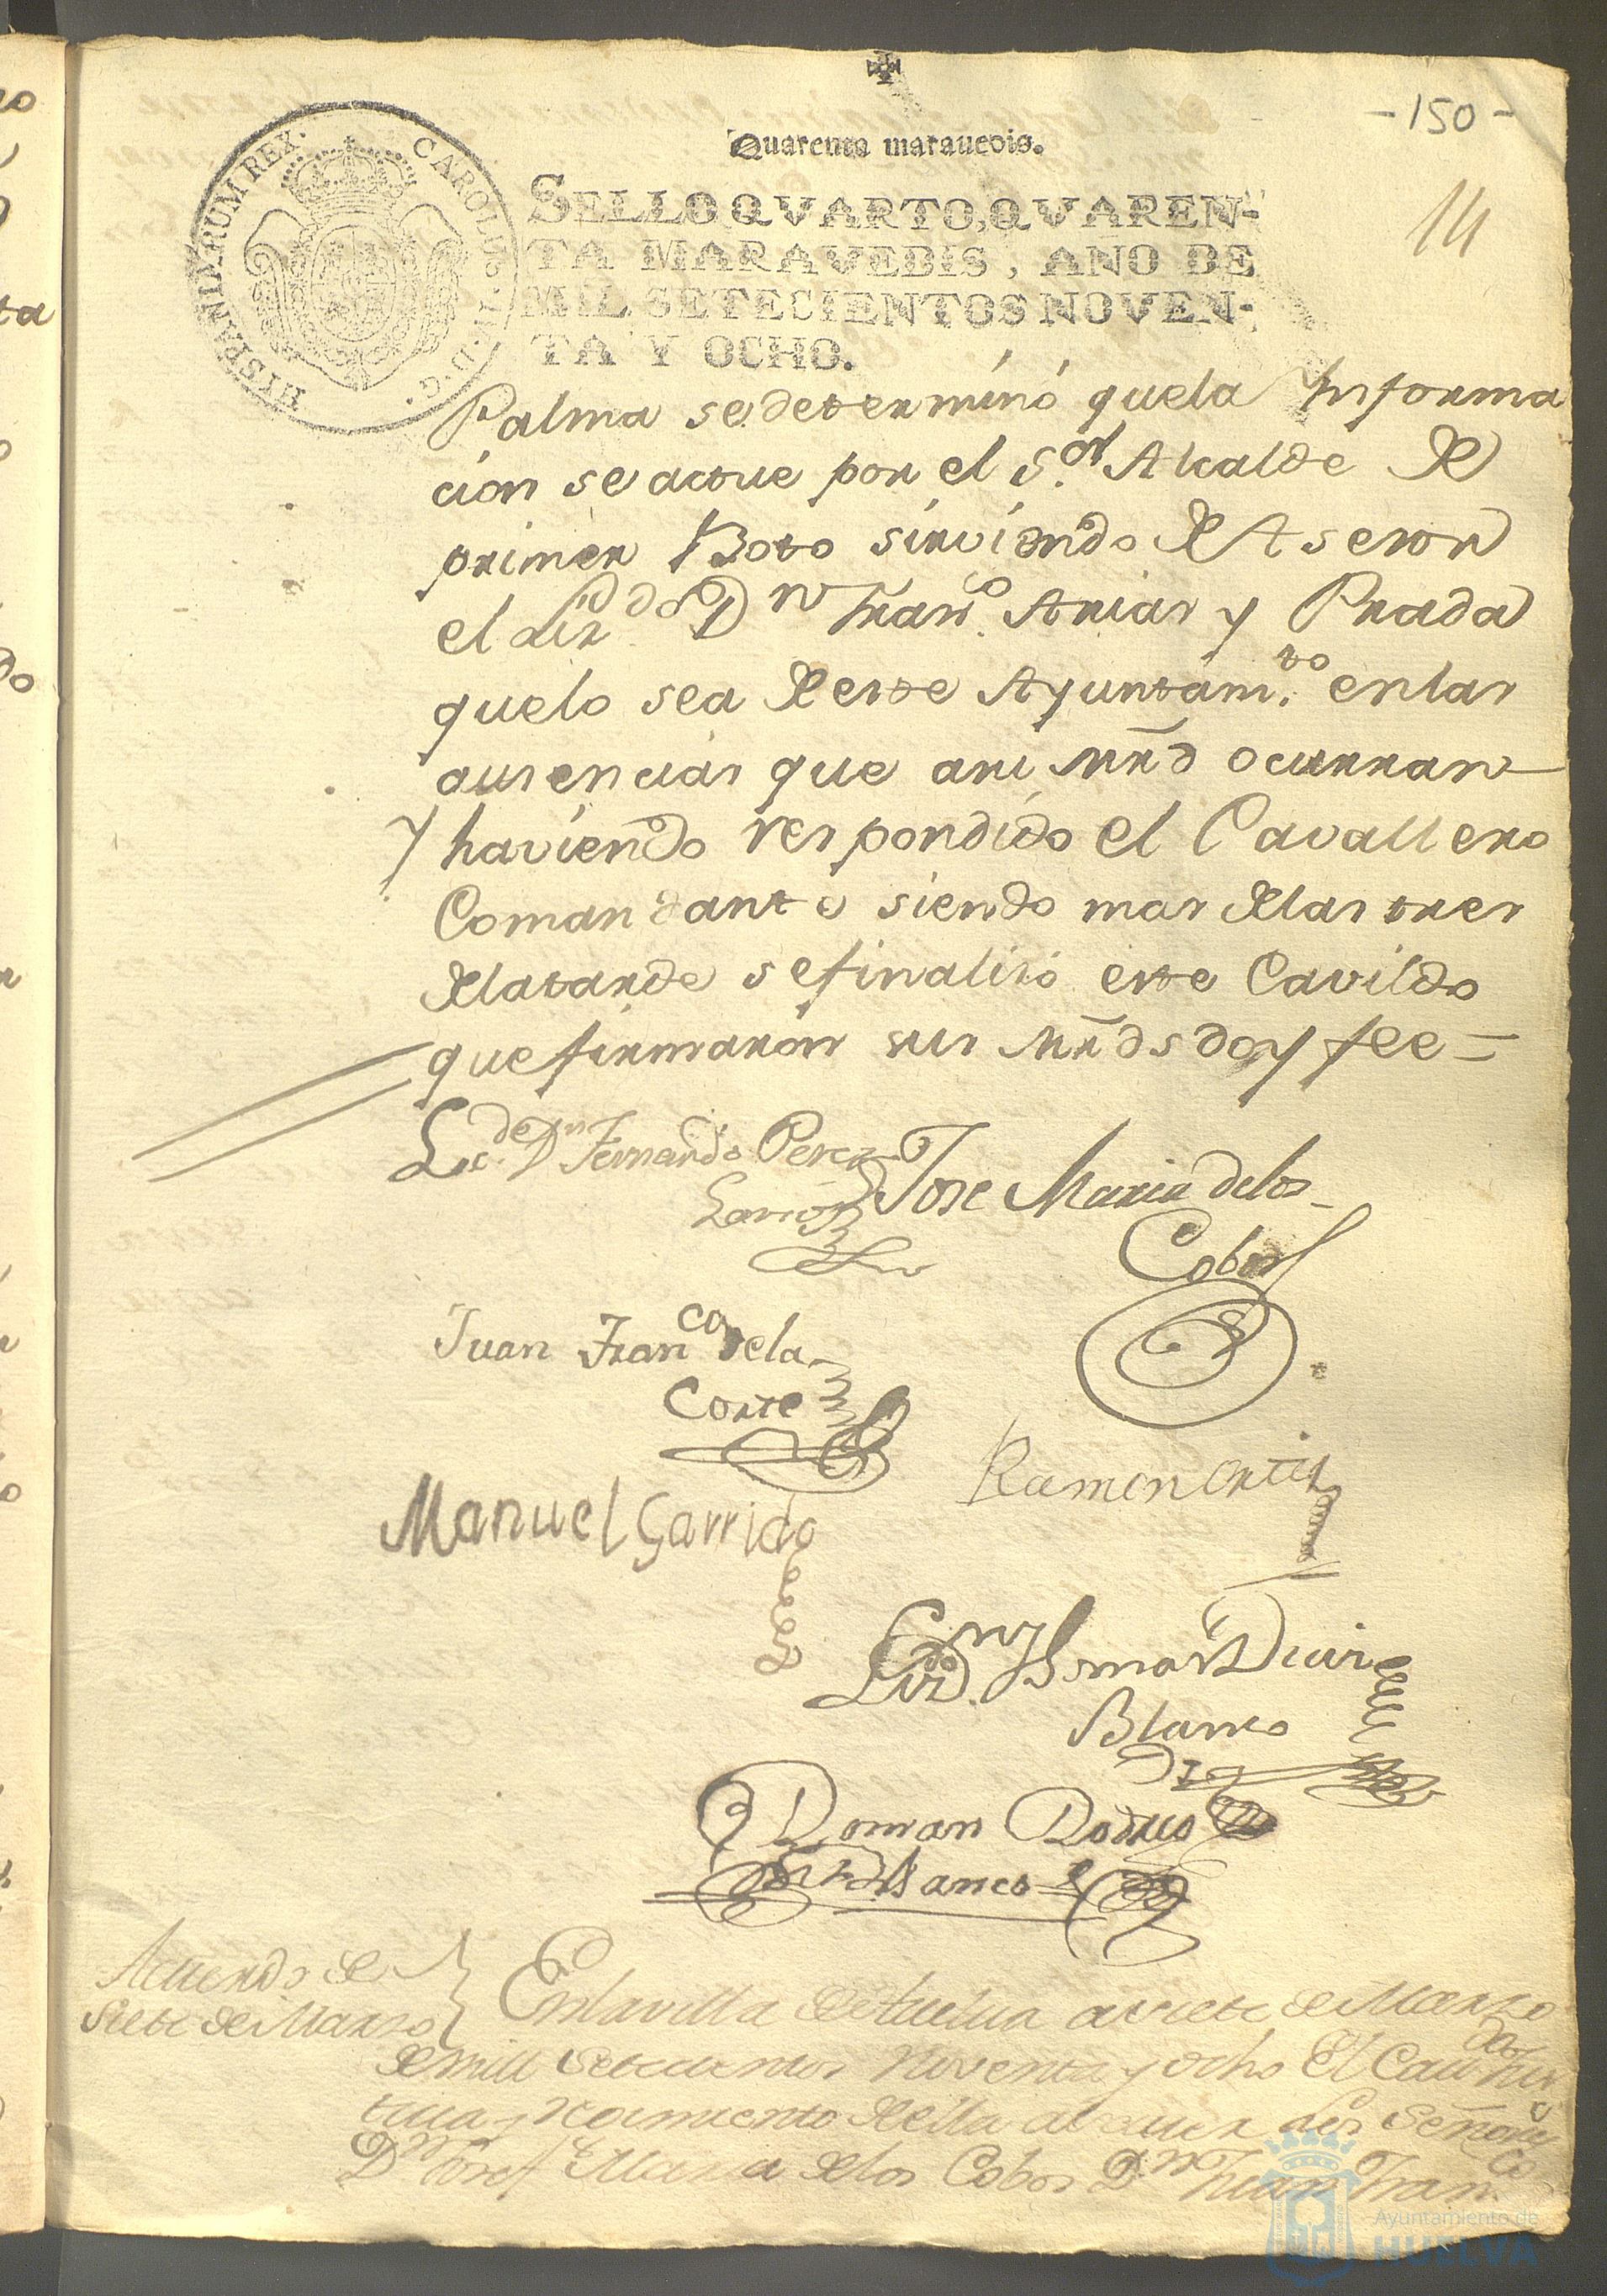 -150-
Quarenta marauedis.
14
HISPANIARUM REX. CAROLUS. IV. D. G.
SELLO QVARTO, QVAREN-
TA MARAVEDIS, AÑO DE
MIL SETECIENTOS NOVEN-
TA Y OCHO.
Palma se determinó quela Informa
cion se actue por el S.or Alcalde de
primer Boto sirviendo de Asesor
el Liz.do Dn Fran.co Arias y Prada
quelo sea de este Ayuntam.to enlas
ausencias que asu Mrd ocurran
y haviendo respondido el Cavallero
Comandante siendo mas delas tres
delatarde sefinalisó este Cavildo
quefirmaron sus Mrds doy fee =
Lic.do Dn Fernando Perez
Jose Maria delos
Cobos
Juan Franco dela
Corte
Ramon Ortiz
Manuel Garrido
Blanco
Roman Rodrig
Blanco
Acuerdo de
Siete de Marzo
Enlavilla de Huelva a siete de Marzo
demill setecientos Noventa y ocho El Cau.do Jus
ticia y Regimiento de ella a saver los Señores
Dn Josef Maria delos Cobos Dn Juan Franco
Ayuntamiento de
HUELVA